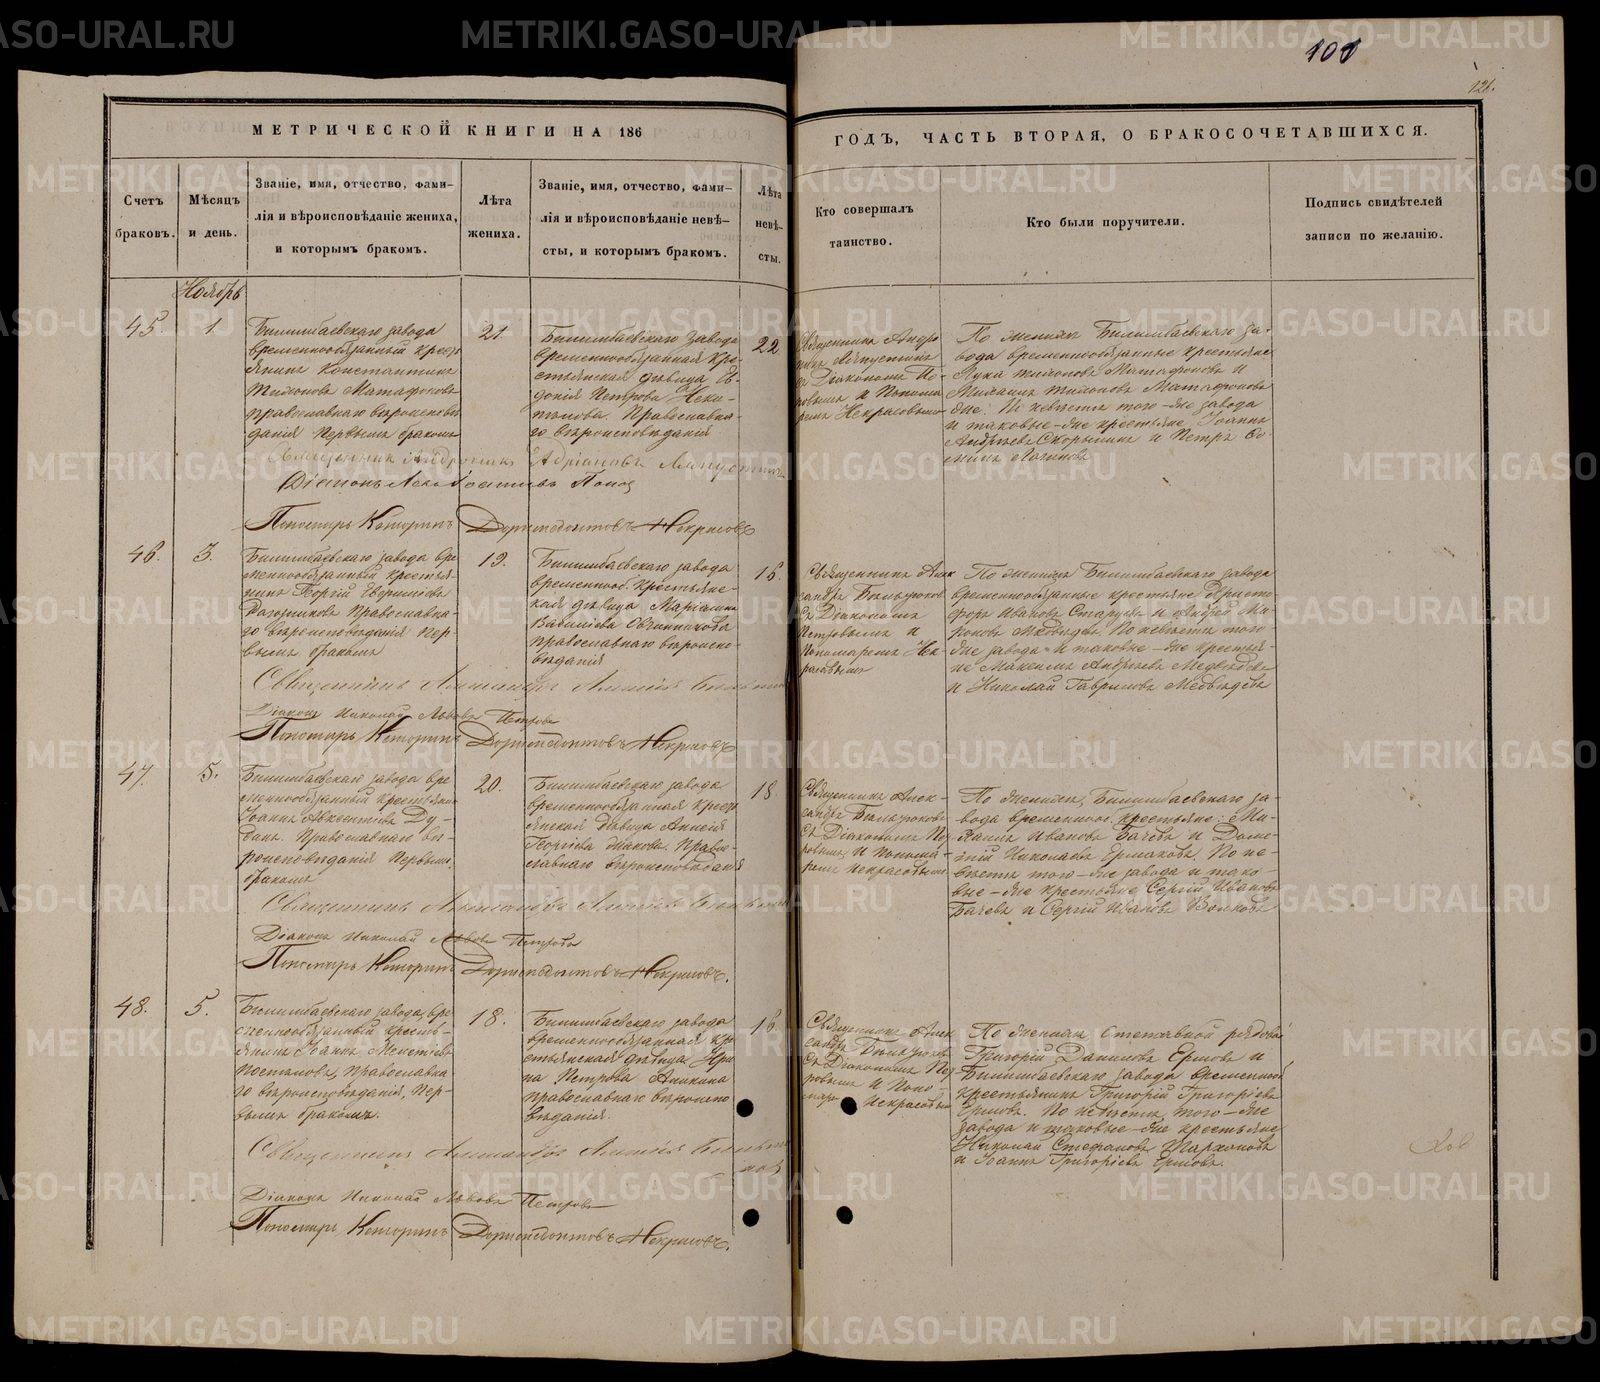 101
121.
МЕТРИЧЕСКОЙ КНИГИ НА 186
ГОДЪ, ЧАСТЬ ВТОРАЯ, О БРАКОСОЧЕТАВШИХСЯ.
Счетъ
браковъ.
Мѣсяцъ
и день.
Званіе, имя, отчество, фами-
лія и вѣроисповѣданіе жениха,
и которымъ бракомъ.
Лѣта
жениха.
Званіе, имя, отчество, фами-
лія и вѣроисповѣданіе невѣ-
сты, и которымъ бракомъ.
Лѣта
невѣ-
сты.
Кто совершалъ
таинство.
Кто были поручители.
Подпись свидѣтелей
записи по желанію.
Ноябрь
45.
1.
Билимбаевскаго завода
временнообязанный крест
янинъ Константинъ
Тихоновъ Матафоновъ
православнаго вѣроисповѣ
данія первымъ бракомъ
21.
Билимбаевскаго завода
временнообязанная кре-
стьянская дѣвица Ев-
докія Петрова
Православна-
го вѣроисповѣданія
22
Священникъ Андро
никъ Ляпустинъ
съ Діакономъ По-
повымъ и Понома
ремъ Некрасовымъ
По женихѣ Билимбаевскаго за-
вода временнообязанные крестьяне
Лука Тихоновъ Матафоновъ и
Михаилъ Тихоновъ Матафоновъ
же. По невѣстѣ того-же завода
и таковые-же крестьяне Іоаннъ
Андреевъ Скорынинъ и Петръ
Логиновъ
Священникъ Андроникъ Адріановъ Ляпустинъ
Діаконъ Поповъ
Пономарь Доримедонтовъ Некрасовъ
46.
3.
Билимбаевскаго завода вре
меннообязанный крестья-
нинъ Георгій Евфимовъ
Православна-
го вѣроисповѣданія пер-
вымъ бракомъ
19.
Билимбаевскаго завода
временнооб. крестьянс-
кая дѣвица Маріамна
Василіева Овчинникова
православнаго вѣроиспо-
вѣданія
16.
Священникъ Алек
сандръ
съ Діакономъ
Петровымъ и
Пономаремъ Нек-
расовымъ
По женихѣ Билимбаевскаго завода
временнообязанные крестьяне Христо
форъ Ивановъ и Андрей Ми-
роновъ Медвѣдевъ. По невѣстѣ того
же завода и таковые-же крестья-
не Максимъ Андреевъ Медвѣдевъ
и Николай Гавриловъ Медвѣдевъ
Священникъ Александръ Алексіевъ
Діаконъ Николай Львовъ Петровъ
Пономарь Доримедонтовъ Некрасовъ
47.
5.
Билимбаевскаго завода вре
меннообязанный крестьянинъ
Іоаннъ Авксентіевъ
Православнаго вѣ-
роисповѣданія первымъ
бракомъ
20.
Билимбаевскаго завода
временнообязанная крест
янская дѣвица Анисія
Георгіева Право-
славнаго вѣроисповѣданія
18
Священникъ Алек-
сандръ
съ Діакономъ Пет
ровымъ и Понома-
ремъ Некрасовымъ
По женихѣ, Билимбаевскаго за-
вода временнооб. крестьяне: Ми-
хаилъ Ивановъ Бачевъ и Доме-
тій Николаевъ Ермаковъ. По не-
вѣстѣ того-же завода и тако-
вые-же крестьяне Сергій Ивановъ
Бачевъ и Сергій Ивановъ Волковъ
Священникъ Александръ Алексіевъ
Діаконъ Николай Львовъ Петровъ
Пономарь Доримедонтовъ Некрасовъ.
48.
5.
Билимбаевскаго завода, вре
меннообязанный кресть-
янинъ Іоаннъ
православна-
го вѣроисповѣданія, пер-
вымъ бракомъ.
18.
Билимбаевскаго завода
временнообязанная кре
стьянская дѣвица Ири
на Петрова Аникина
православнаго вѣроиспо
вѣданія.
16
Священникъ Алек
сандръ
съ Діакономъ Пет
ровымъ и Поно-
маре Некрасовым
По женихѣ отставной рядовой
Григорій Даниловъ Ершовъ и
Билимбаевскаго завода временнооб
крестьянинъ Григорій Григоріевъ
Ершовъ. По невѣстѣ, того-же
завода и таковые-же крестьяне
Николай Стефановъ Тархановъ
и Іоаннъ Григоріевъ Ершовъ.
Священникъ Александръ Алексіевъ
Діаконъ Николай Львовъ Петровъ
Пономарь Доримедонтовъ Некрасовъ.
METRIKI.GASO-URAL.RU